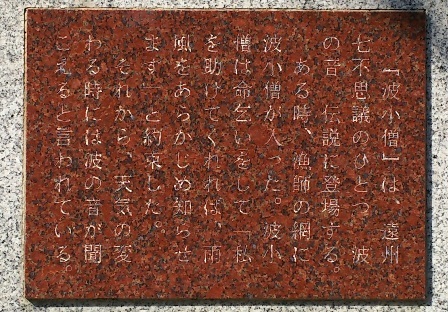 「波小僧」は、遠州
七不思議のひとつ「波
の音」伝説に登場する。
ある時、漁師の網に
波小僧が入った。波小
僧は命乞いをして「私
を助けてくれれば、雨
風をあらかじめ知らせ
ます」と約束した。
それから、天気の変
わる時には波の音が聞
こえると言われている。